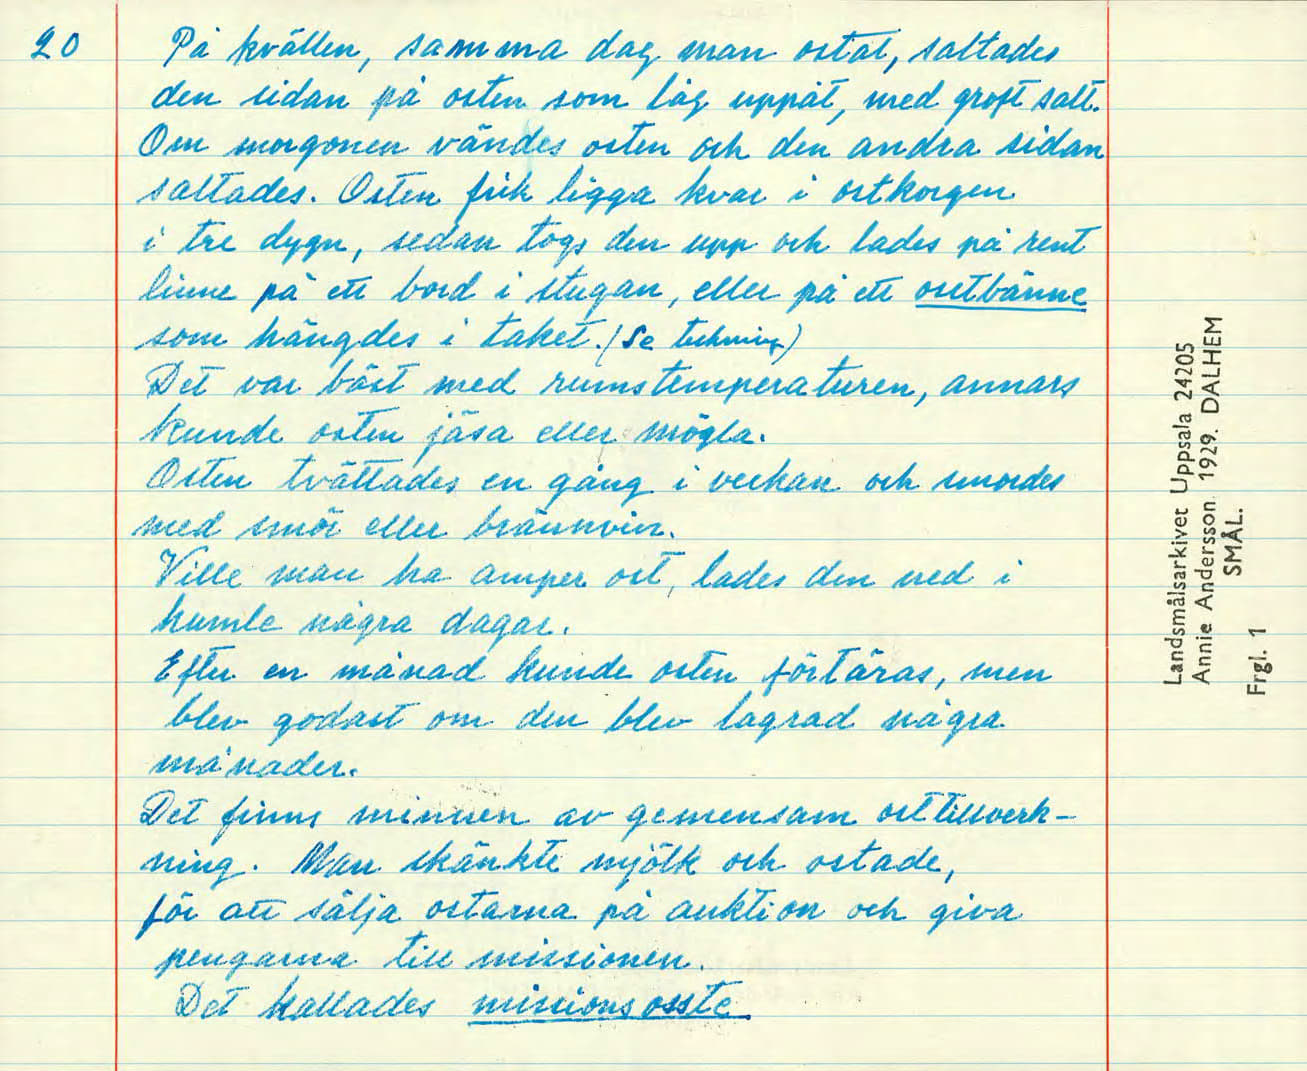 20
På kvällen, samma dag man ostat, saltades
den sidan på osten som låg uppåt, med groft salt.
Om morgonen vändes osten och den andra sidan
saltades. Osten fick ligga kvar i ostkorgen
i tre dygn, sedan togs den upp och lades på rent
linne på ett bord i stugan, eller på ett ostbänne
som hängdes i taket. (Se teckning)
Det var bäst med rumstemperaturen, annars
kunde osten jäsa eller mögla.
Osten tvättades en gång i veckan och smordes
med smör eller brännvin.
Ville man ha amper ost, lades den ned i
humle några dagar.
Efter en månad kunde osten förtäras, men
blev godast om den blev lagrad några
månader.
Det finns minnen av gemensam osttillverk-
ning. Man skänkte mjölk och ostade,
för att sälja ostarna på auktion och giva
pengarna till missionen.
Det kallades missionsosste.
Landsmålsarkivet Uppsala 24205
Annie Andersson. 1929. DALHEM
SMÅL.
Frgl. 1